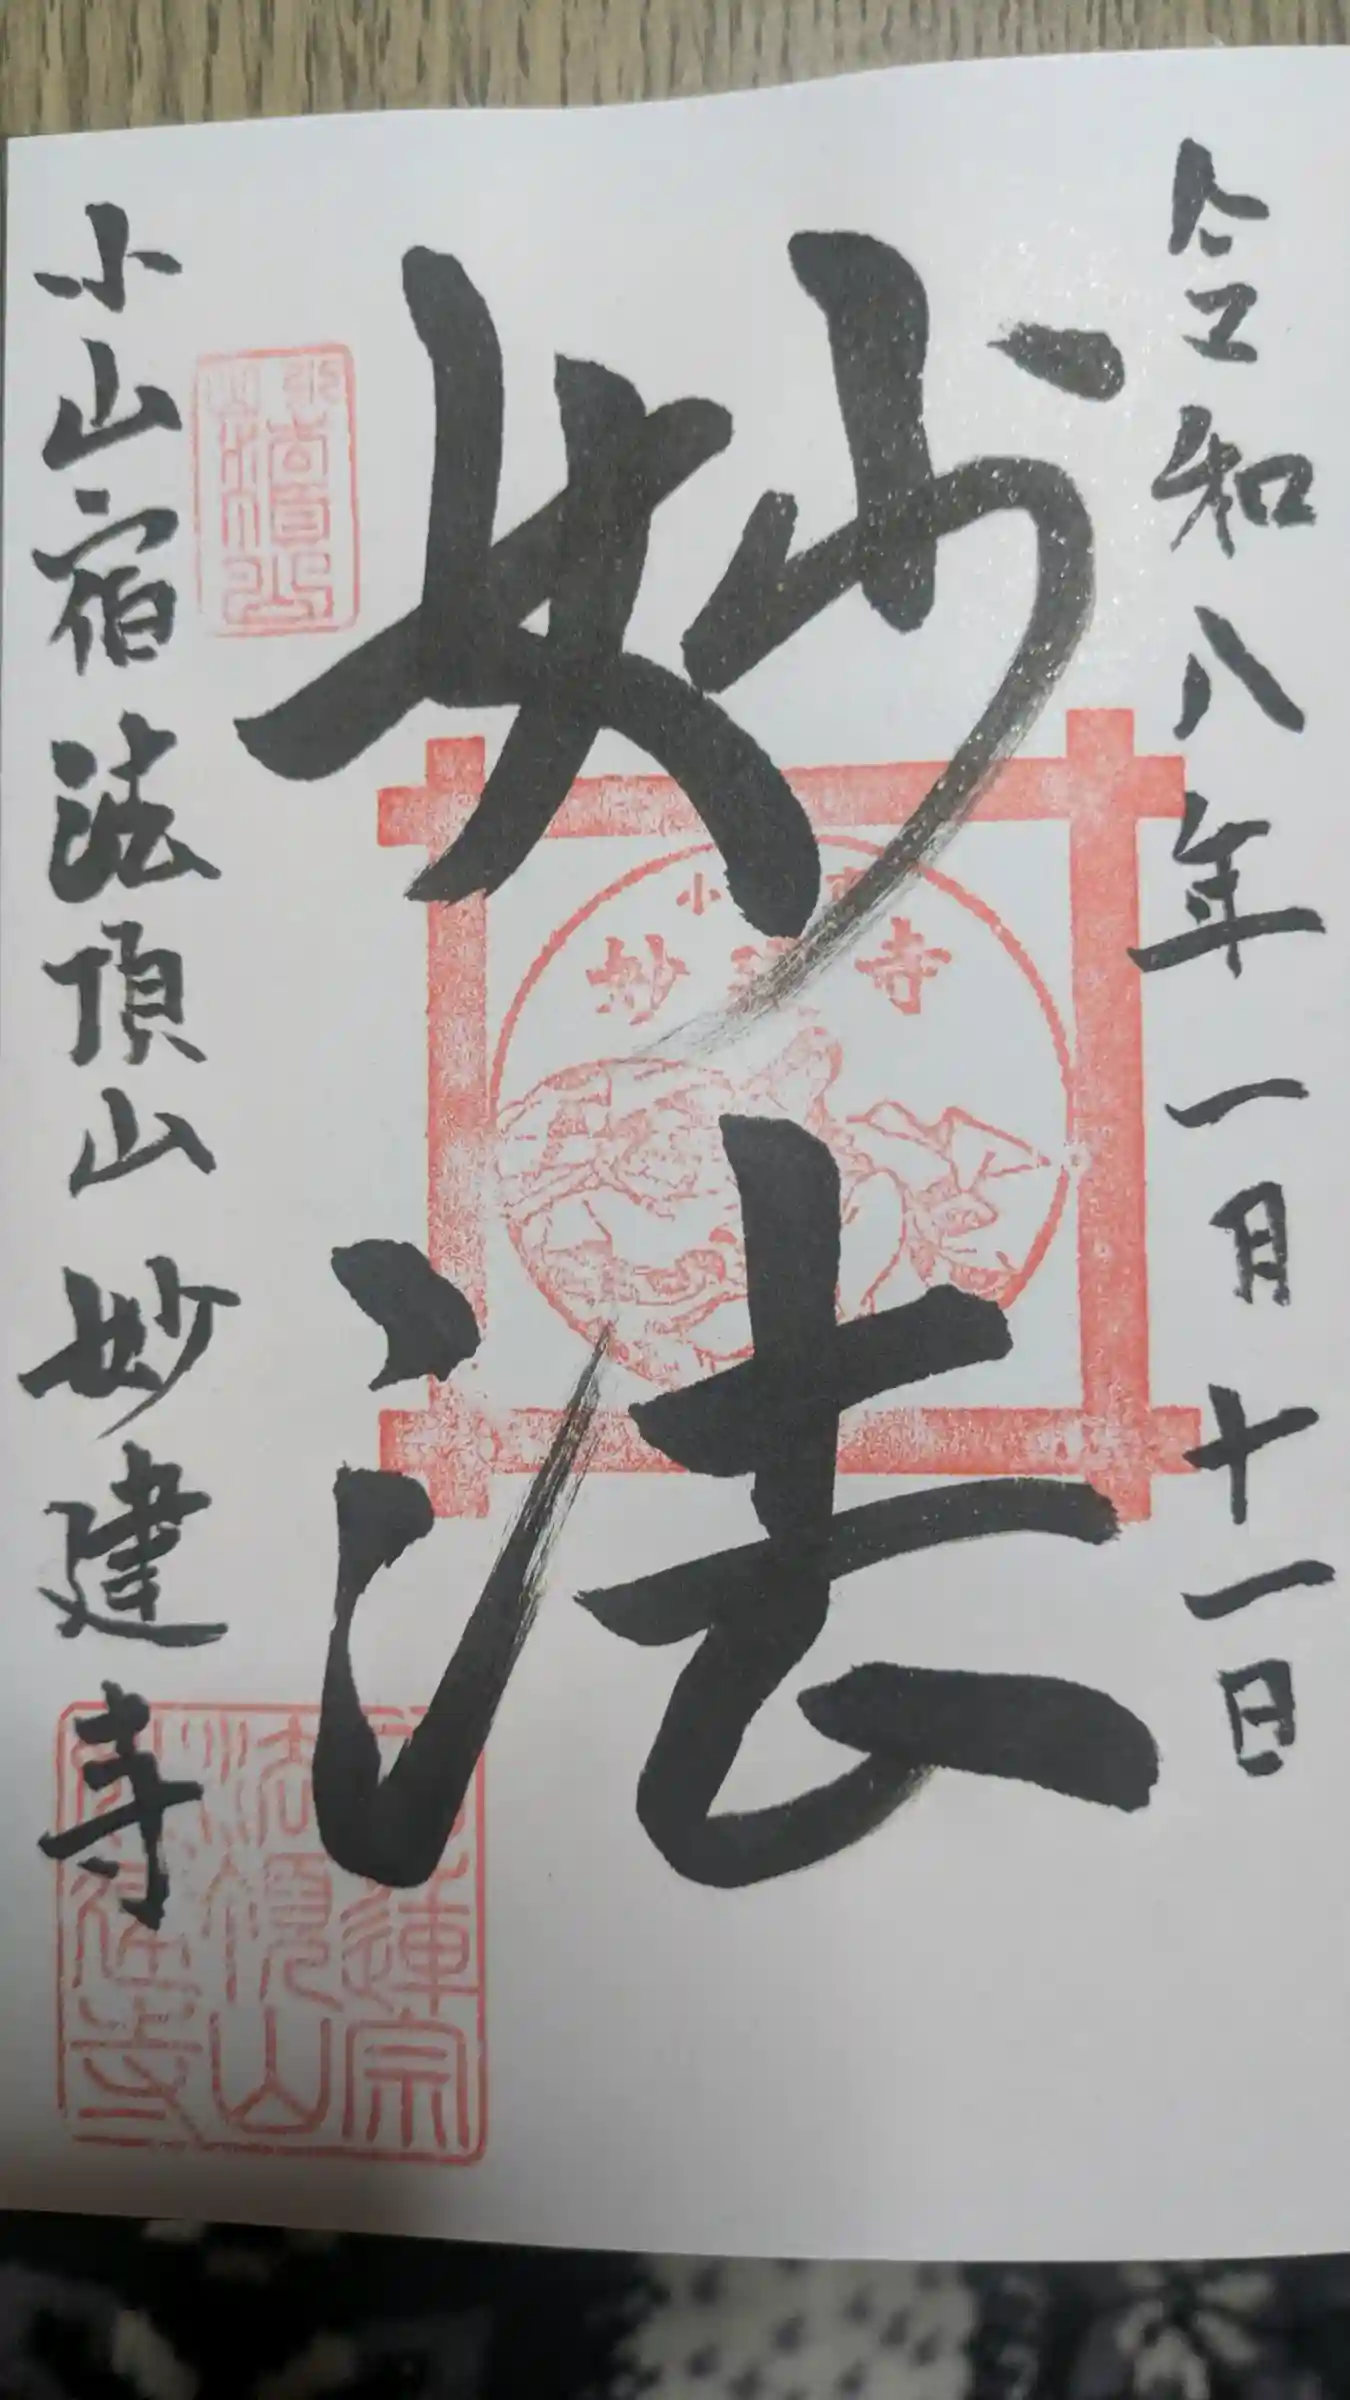 令和八年一月十一日
妙法
小山宿法頂山妙建寺
小
妙建寺
法頂山
蓮宗